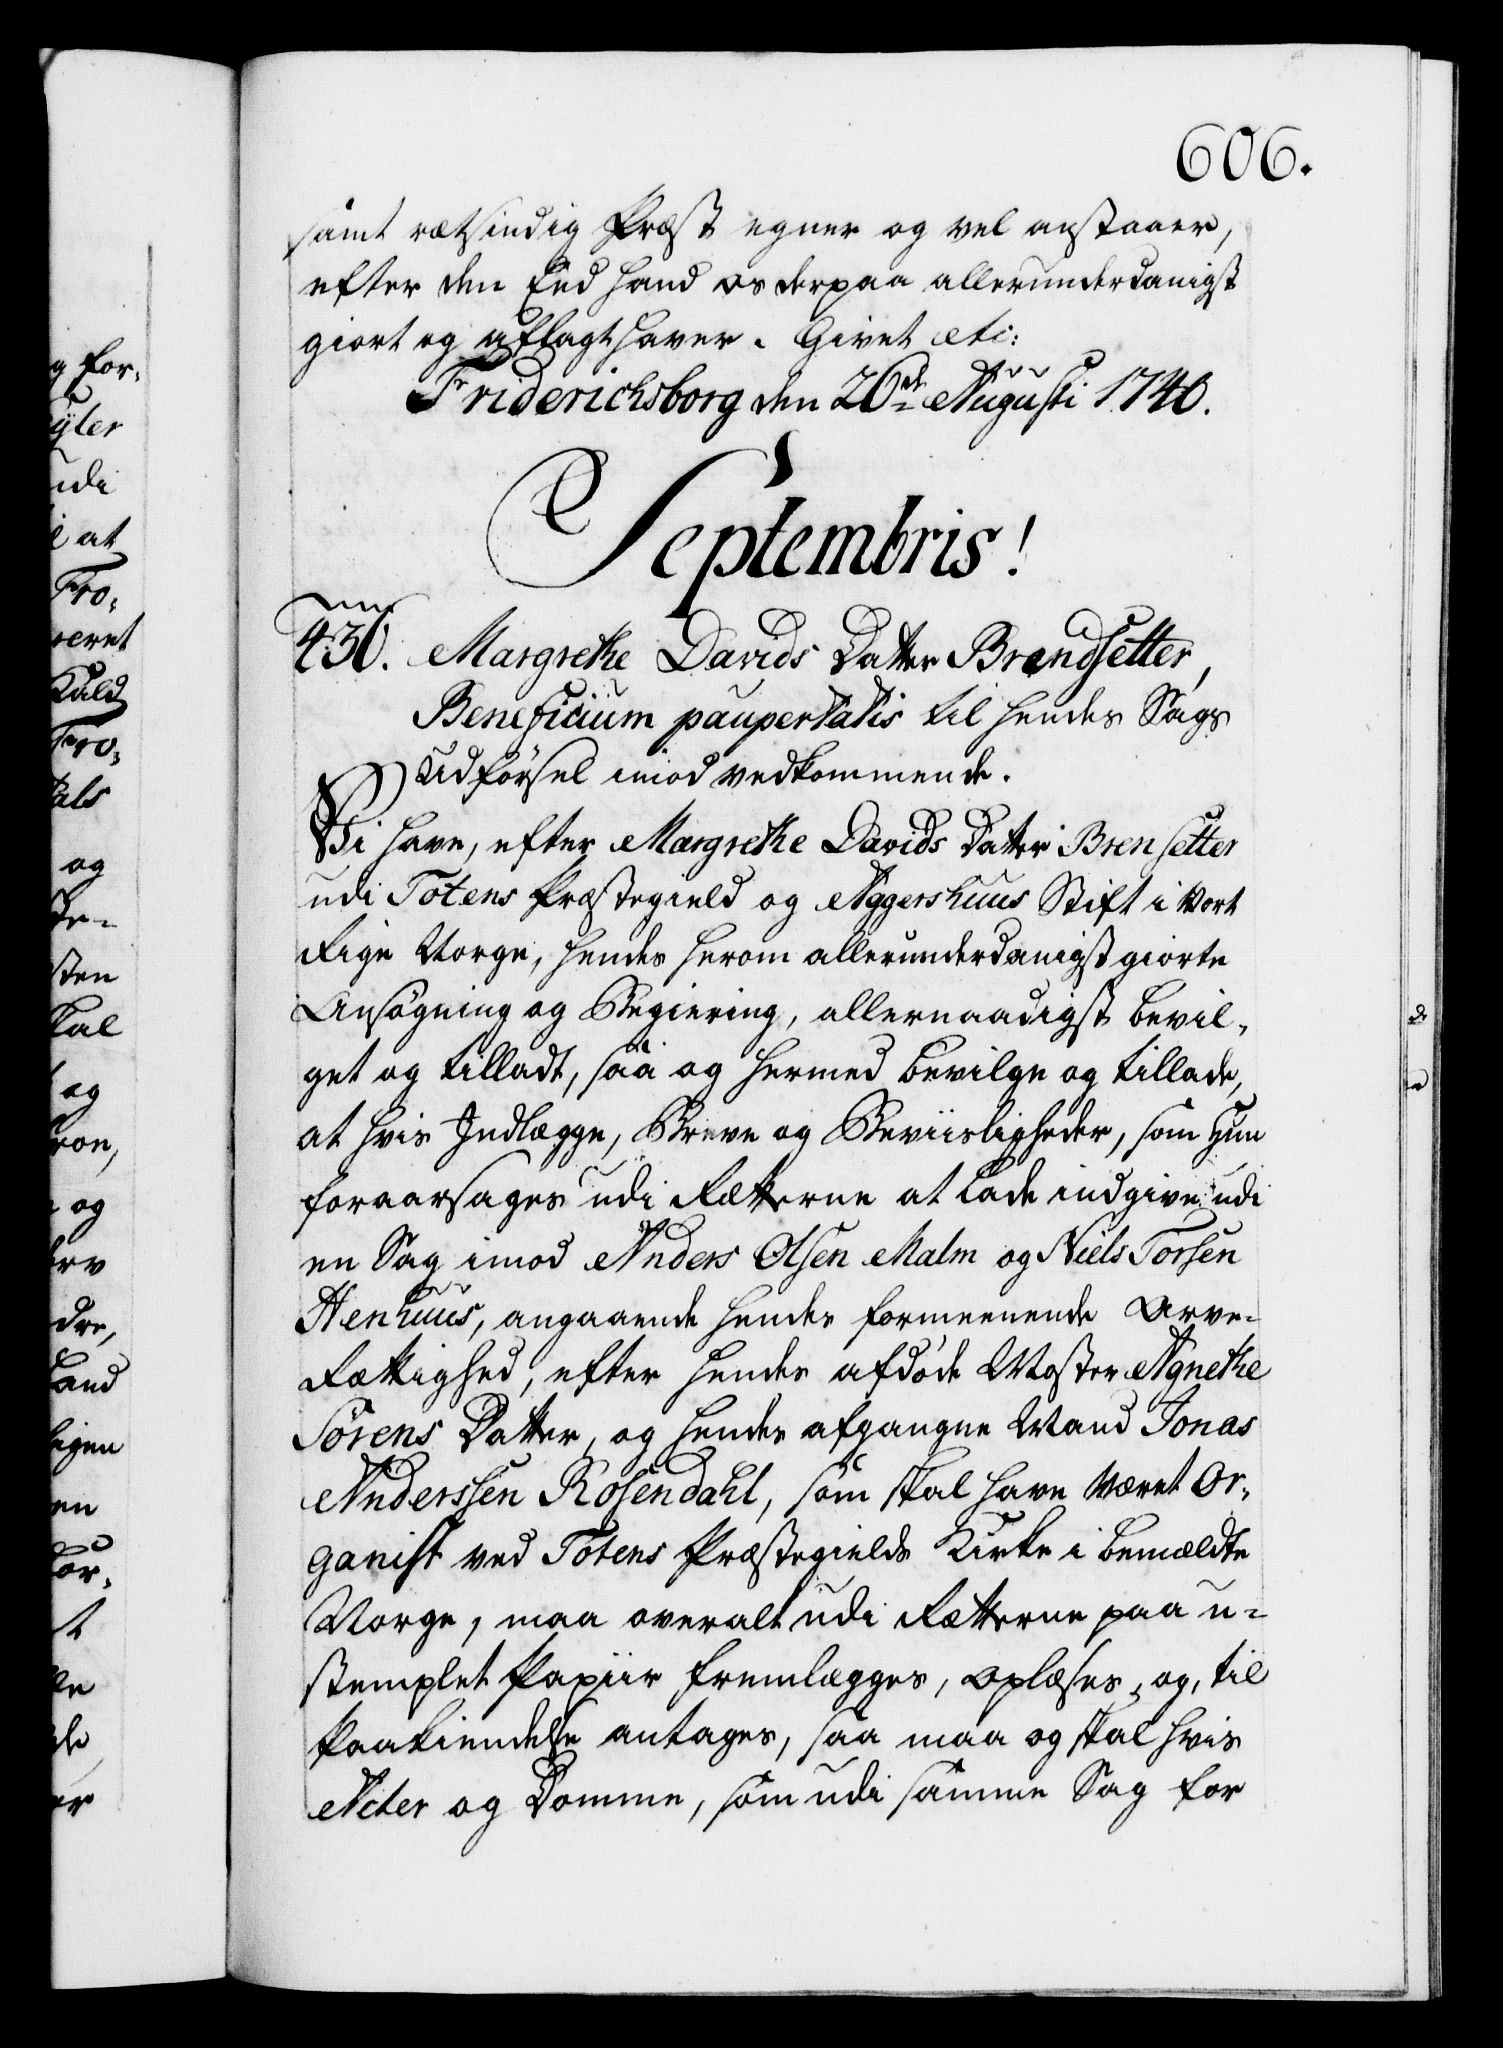 606.
samt rætsindig Præst egner og vel anstaaer,
efter den Eed hand os derpaa allerunderdanigst
giort og aflagt haver. Givet etc:
Friderichsborg den 26de Augusti 1740.
Septembris!
430. Margrethe Davids Datter Brandsetter,
Beneficium paupertatis til hendes Sags
Udførsel imod vedkommende.
Vi have, efter Margrethe Davids Datter Brensetter
udi Totens Præstegield og Aggershuus Stift i Vort
Rige Norge, hendes herom allerunderdanigst giorte
Ansøgning og Begiering, allernaadigst bevil-
get og tilladt, saa og hermed bevilge og tillade,
at hvis Indlægge, Breve og Beviisligheder, som Hun
foraarsages udi Rætterne at lade indgive udi
en Sag imod Anders Olsen Malm og Niels Torsen
Henhuus, angaaende hendes formeenende Arve-
Rættighed, efter hendes afdøde Moster Agnethe
Sørens Datter, og hendes afgangne Mand Jonas
Anderssen Rosendahl, som skal have været Or-
ganist ved Totens Præstegields Kirke i bemældte
Norge, maa overalt udi Rætterne paa u-
stemplet Papiir fremlægges, oplæses, og, til
Paakiendelse antages, saa maa og skal hvis
Acter og Domme, som udi samme Sag for
g for-
til
udi
at
Fro-
veret
Kald
Fro-
tals
og
sten
skal
og
og
dre,
land
ligen
en
t